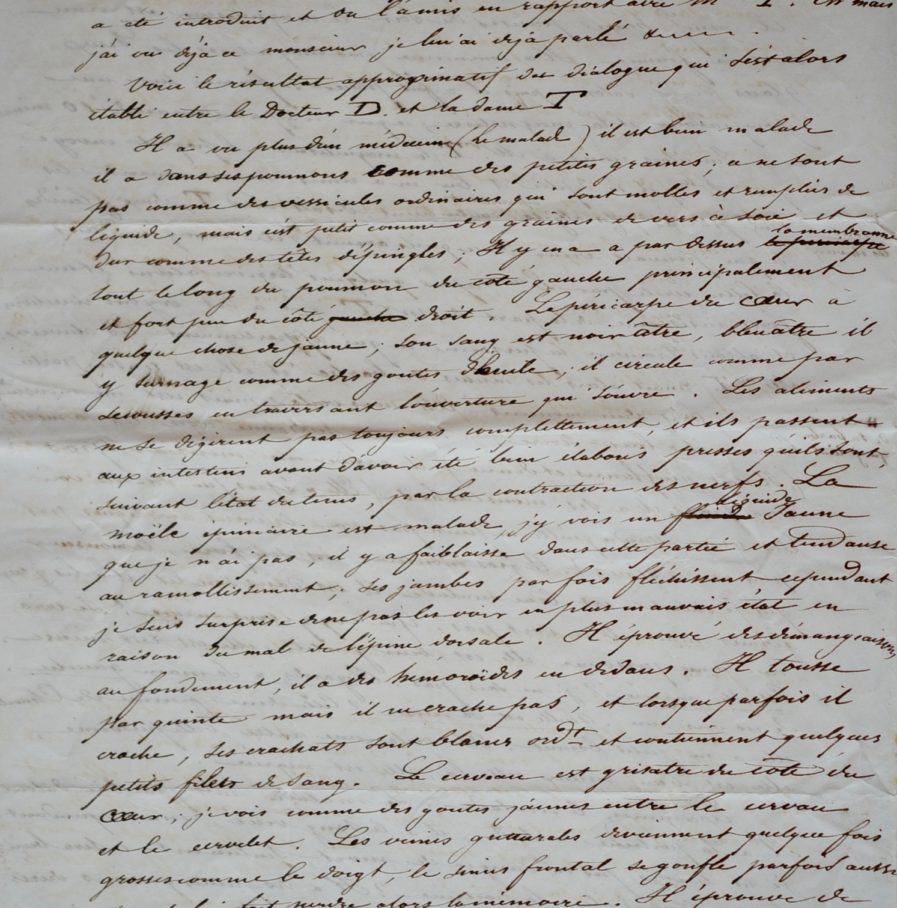 a été introduit et on l'a mis en rapport avec Mme T. Eh mais
j'ai vu déjà ce monsieur je lui ai déjà parlé
Voici le résultat approximatif du dialogue qui s'est alors
établi entre le Docteur D. et la dame T
Il a vu plus d'un médecin (le malade) il est bien malade
il a dans ses poumons comme des petites graines; ce ne sont
pas comme des vessicules ordinaires qui sont molles et remplies de
liquide, mais c'est petit comme des graines de vers à soie et
dur comme des têtes d'épingles; Il y en a par dessus la membranne
tout le long du poumon du côté gauche principalement
et fort peu du côté gauche droit. Le péricarpe du cœur à
quelque chose de jaune; son sang est noirâtre, bleuâtre il
y surnage comme des goutes d'huile; il circule comme par
secousses en traversant l'ouverture qui s'ouvre. Les aliments
ne se digèrent pas toujours complettement, et ils passent
aux intestins avant d'avoir été bien élaborés presses qu'ils sont,
suivant l'état du tems, par la contraction des nerfs. La
moële épiniaire est malade, j'y vois un fluide liquide Jaune
que je n'ai pas, il y a faiblaisse dans cette partie et tendanse
au ramollissement; ses jambes par fois fléchissent cependant
je suis surprise de ne pas les voir en plus mauvais état en
raison du mal de l'épine dorsale. Il éprouve des démangeaisons
au fondement, il a des hémoroïdes en dedans. Il tousse
par quinte mais il ne crache pas, et lorsque parfois il
crache, ses crachats sont blancs ordt et contiennent quelques
petits filets de sang. Le cerveau est grisatre du côté du
cœur; je vois comme des goutes jaunes entre le cerveau
et le cervelet. Les veines gutturales deviennent quelque fois
grosses comme le doigt, le sinus frontal se gonfle parfois aussi
fait perdre alors la mémoire. Il éprouve de